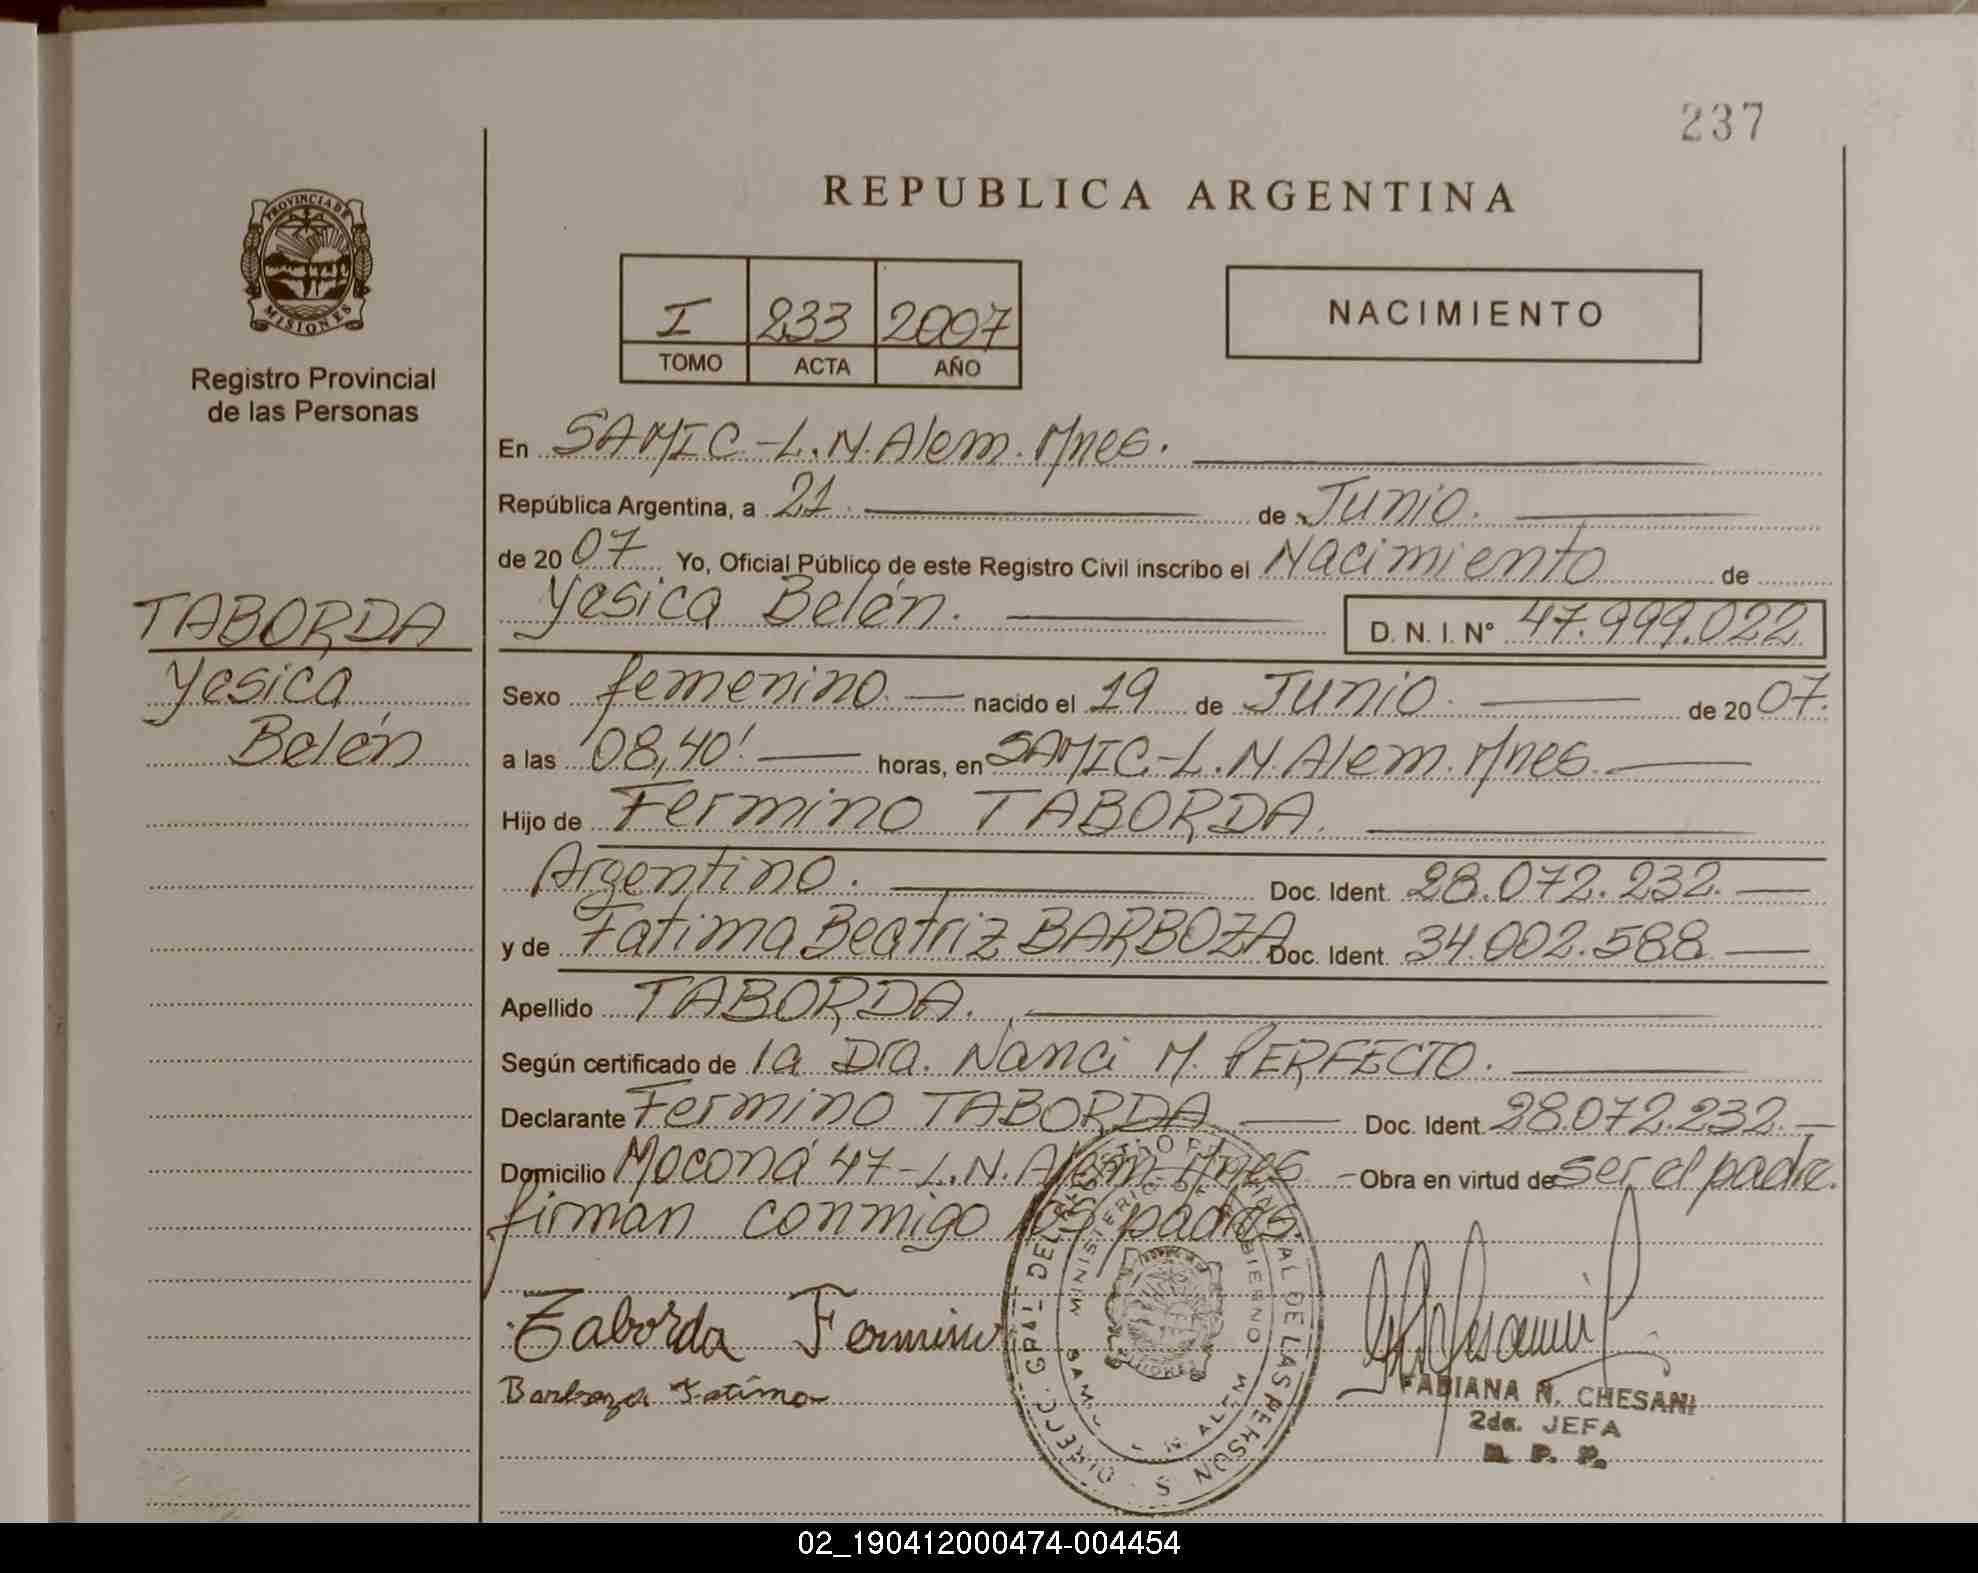 237
REPUBLICA ARGENTINA
PROVINCIA DE
MISIONES
Registro Provincial
de las Personas
I 233 2007
TOMO ACTA AÑO
NACIMIENTO
En SAMIC-L.N.Alem.Mnes.
República Argentina, a 21 de Junio.
de 2007 Yo, Oficial Público de este Registro Civil inscribo el Nacimiento de
Yesica Belén. D. N. I. N° 47.999.022
TABORDA
Yesica
Belén
Sexo femenino. nacido el 19 de Junio. de 2007.
a las 08,40' horas, en SAMIC.-L.N.Alem.Mnes.
Hijo de Fermino TABORDA.
Argentino. Doc. Ident. 28.072.232.
y de Fatima Beatriz BARBOZA Doc. Ident. 34.002.588
Apellido TABORDA.
Según certificado de la Dra. Nanci M. PERFECTO.
Declarante Fermino TABORDA Doc. Ident. 28.072.232.-
Domicilio Moconá 47-L.N.Alem-Mnes - Obra en virtud de ser el padre.
firman conmigo los padres.
Taborda Fermino
Barboza Fatima
FABIANA N. CHESANI
2da. JEFA
R. P. P.
02_190412000474-004454